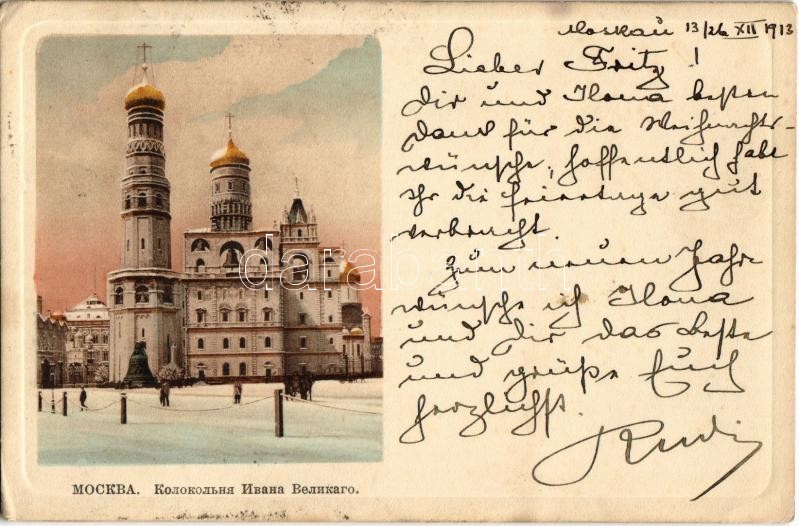 Moskau 13/26 XII 1913
Lieber Fritz!
Dir und Ilona besten
Dank für die Weihnachts-
wünsche, hoffentlich habt
Ihr die Feiertage gut
verbracht.
Zum neuen Jahr
wünsche ich Ilona
und Dir das Beste
und grüße Euch
herzlichst.
Rudi
darabanth
МОСКВА. Колокольня Ивана Великаго.